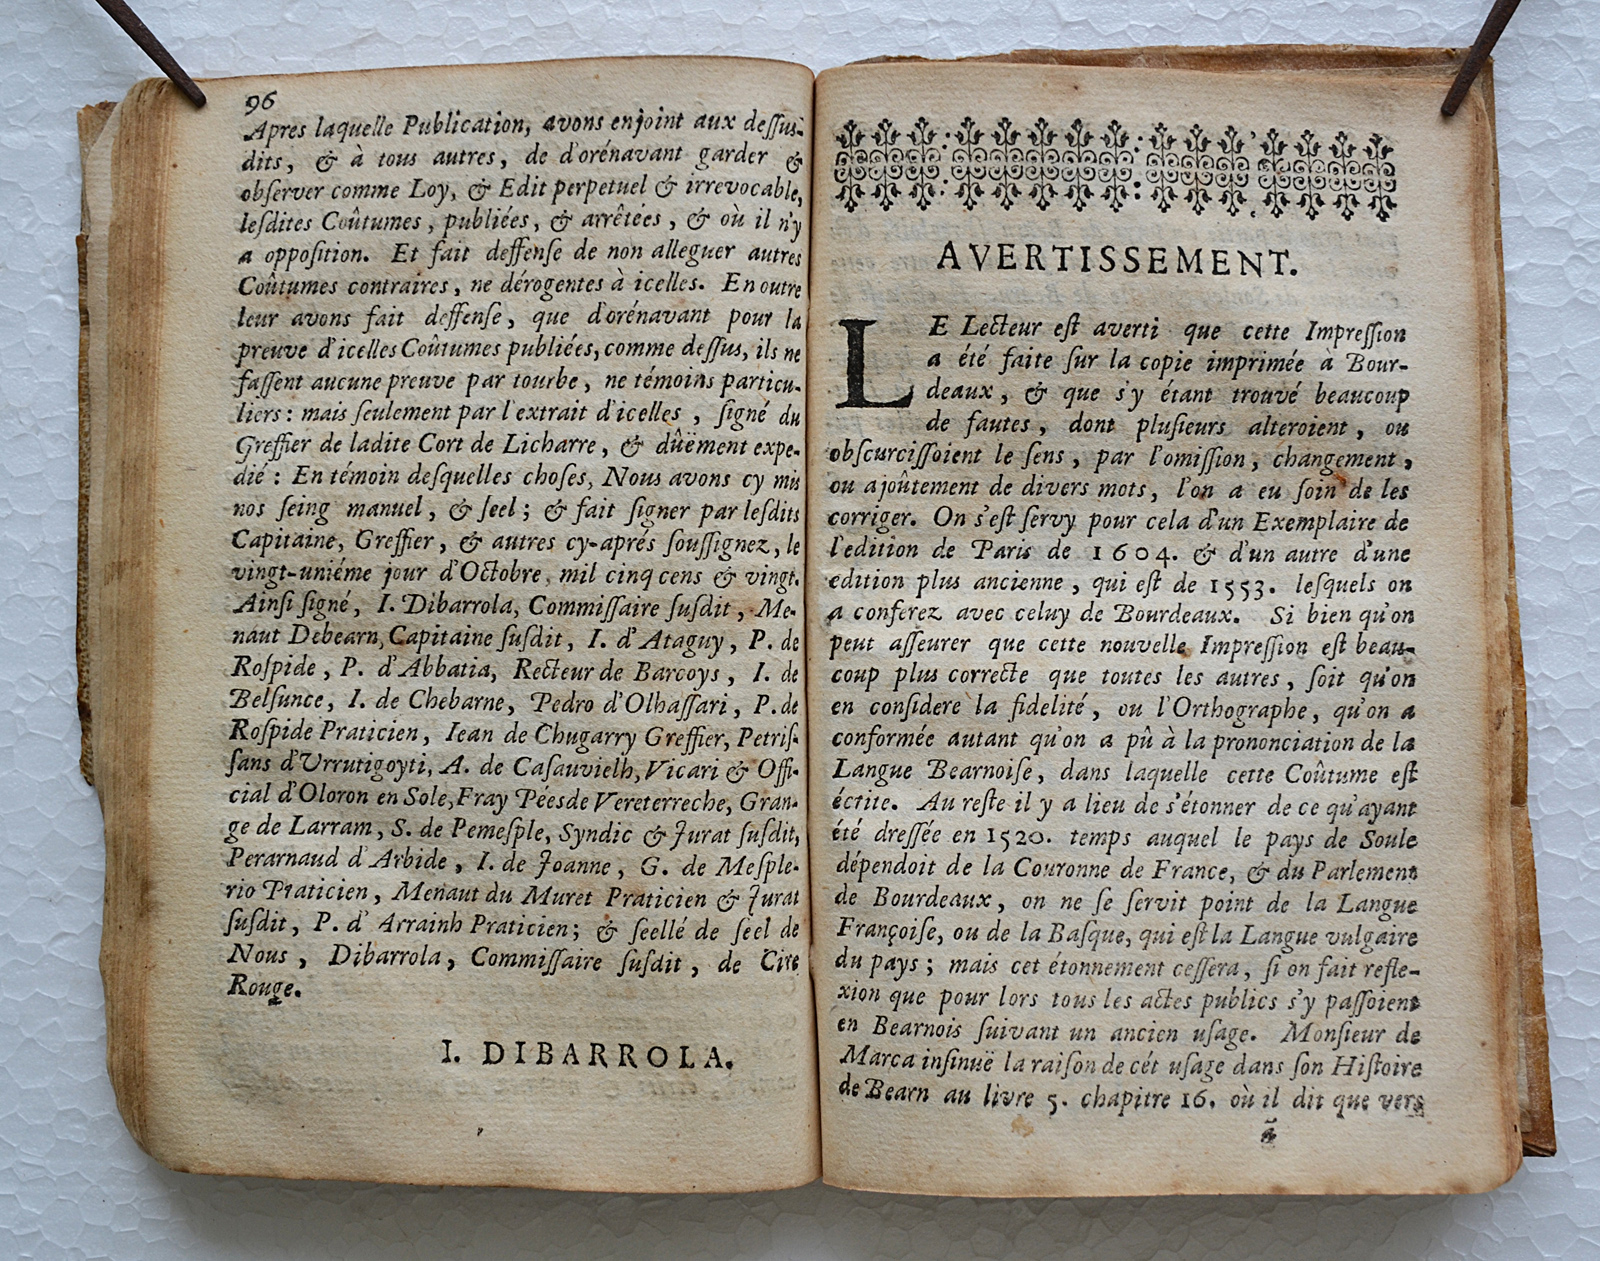 96
Apres laquelle Publication, avons enjoint aux deſſus-
dits, & à tous autres, de d'orénavant garder &
obſerver comme Loy, & Edit perpetuel & irrevocable,
leſdites Coûtumes, publiées, & arrêtées, & où il n'y
a oppoſition. Et fait deffenſe de non alleguer autres
Coûtumes contraires, ne dérogentes à icelles. En outre
leur avons fait deffenſe, que d'orénavant pour la
preuve d'icelles Coûtumes publiées, comme deſſus, ils ne
faſſent aucune preuve par tourbe, ne témoins particu-
liers: mais ſeulement par l'extrait d'icelles, ſigné du
Greffier de ladite Cort de Licharre, & dûëment expe-
dié: En témoin deſquelles choſes, Nous avons cy mis
nos ſeing manuel, & ſeel; & fait ſigner par leſdits
Capitaine, Greffier, & autres cy-aprés ſouſſignez, le
vingt-uniéme jour d'Octobre, mil cinq cens & vingt.
Ainſi ſigné, I. Dibarrola, Commiſſaire ſuſdit, Me-
naut Debearn, Capitaine ſuſdit, I. d'Ataguy, P. de
Roſpide, P. d'Abbatia, Recteur de Barcoys, I. de
Belſunce, I. de Chebarne, Pedro d'Olhaſſari, P. de
Roſpide Praticien, Iean de Chugarry Greffier, Petriſ-
ſans d'Urrutigoyti, A. de Caſauvielh, Vicari & Offi-
cial d'Oloron en Sole, Fray Pées de Vereterreche, Gran-
ge de Larram, S. de Pemeſple, Syndic & Jurat ſuſdit,
Perarnaud d'Arbide, I. de Joanne, G. de Meſple-
rio Praticien, Menaut du Muret Praticien & Jurat
ſuſdit, P. d'Arrainh Praticien; & ſeellé de ſeel de
Nous, Dibarrola, Commiſſaire ſuſdit, de Cire
Rouge.
I. DIBARROLA.
AVERTISSEMENT.
LE Lecteur eſt averti que cette Impreſſion
a été faite ſur la copie imprimée à Bour-
deaux, & que s'y étant trouvé beaucoup
de fautes, dont pluſieurs alteroient, ou
obſcurciſſoient le ſens, par l'omiſſion, changement,
ou ajoûtement de divers mots, l'on a eu ſoin de les
corriger. On s'eſt ſervy pour cela d'un Exemplaire de
l'edition de Paris de 1604. & d'un autre d'une
edition plus ancienne, qui eſt de 1553. leſquels on
a conferez avec celuy de Bourdeaux. Si bien qu'on
peut aſſeurer que cette nouvelle Impreſſion eſt beau-
coup plus correcte que toutes les autres, ſoit qu'on
en conſidere la fidelité, ou l'Orthographe, qu'on a
conformée autant qu'on a pû à la prononciation de la
Langue Bearnoiſe, dans laquelle cette Coûtume eſt
écrite. Au reſte il y a lieu de s'étonner de ce qu'ayant
été dreſſée en 1520. temps auquel le pays de Soule
dépendoit de la Couronne de France, & du Parlement
de Bourdeaux, on ne ſe ſervit point de la Langue
Françoiſe, ou de la Baſque, qui eſt la Langue vulgaire
du pays; mais cet étonnement ceſſera, ſi on fait refle-
xion que pour lors tous les actes publics s'y paſſoient
en Bearnois ſuivant un ancien uſage. Monſieur de
Marca inſinuë la raiſon de cét uſage dans ſon Hiſtoire
de Bearn au livre 5. chapitre 16. où il dit que vers